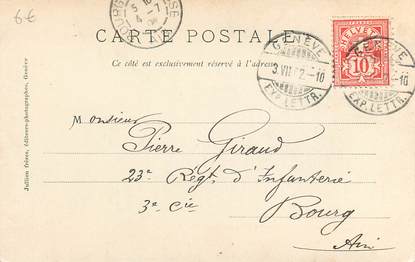 6€
CARTE POSTALE
Ce côté est exclusivement réservé à l'adresse.
GENÈVE
3.VII. 2-10
EXP. LETTR.
HELVETIA
10
GENÈVE
-10
EXP. LETTR.
Jullien frères, éditeurs-photographes, Genève
Monsieur
Pierre Giraud
23e Régt. d'Infanterie
3e Cie
Bourg
Ain